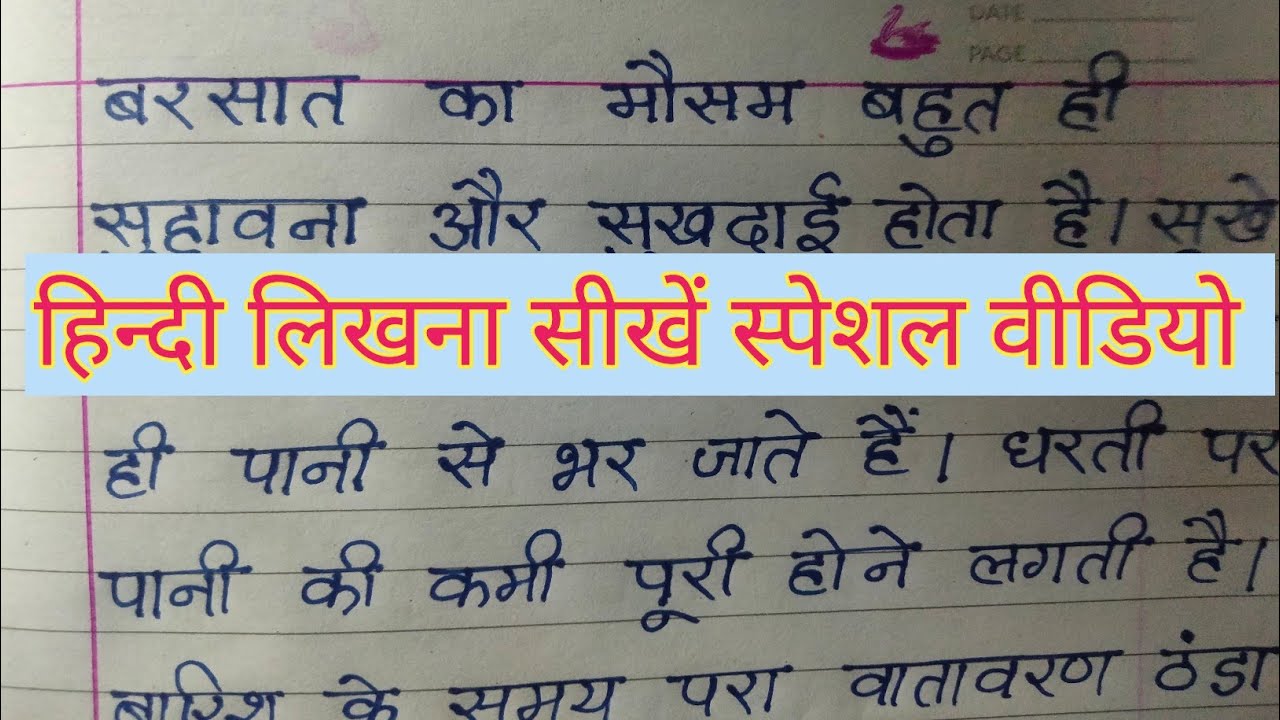 DATE
PAGE
बरसात का मौसम बहुत ही
सुहावना और सुखदाई होता है। सूखे
हिन्दी लिखना सीखें स्पेशल वीडियो
ही पानी से भर जाते हैं। धरती पर
पानी की कमी पूरी होने लगती है।
बारिश के समय पूरा वातावरण ठंडा